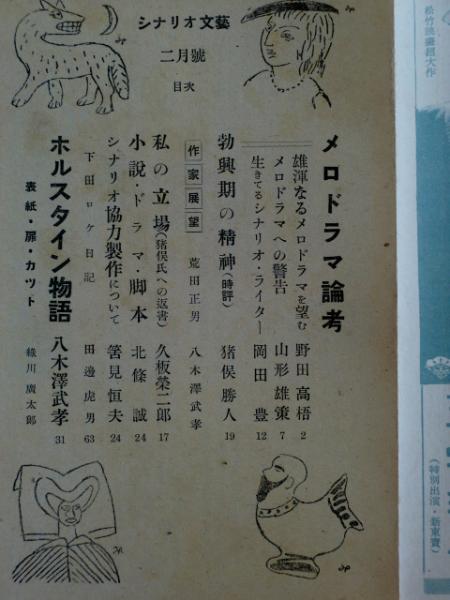 シナリオ文藝
二月號
目次
メロドラマ論考
雄渾なるメロドラマを望む 野田高梧 2
メロドラマへの警告 山形雄策 7
生きてるシナリオ・ライター 岡田豊 12
勃興期の精神(時評) 猪俣勝人 19
作家展望 荒田正男 八木澤武孝
私の立場(猪俣氏への返書) 久板榮二郎 17
小説・ドラマ・脚本 北條誠 24
シナリオ協力製作について 筈見恒夫 24
下田ロケ日記 田邊虎男 63
ホルスタイン物語 八木澤武孝 31
表紙・扉・カット 綠川廣太郎
松竹映畫超大作
(特別出演・新東寶)